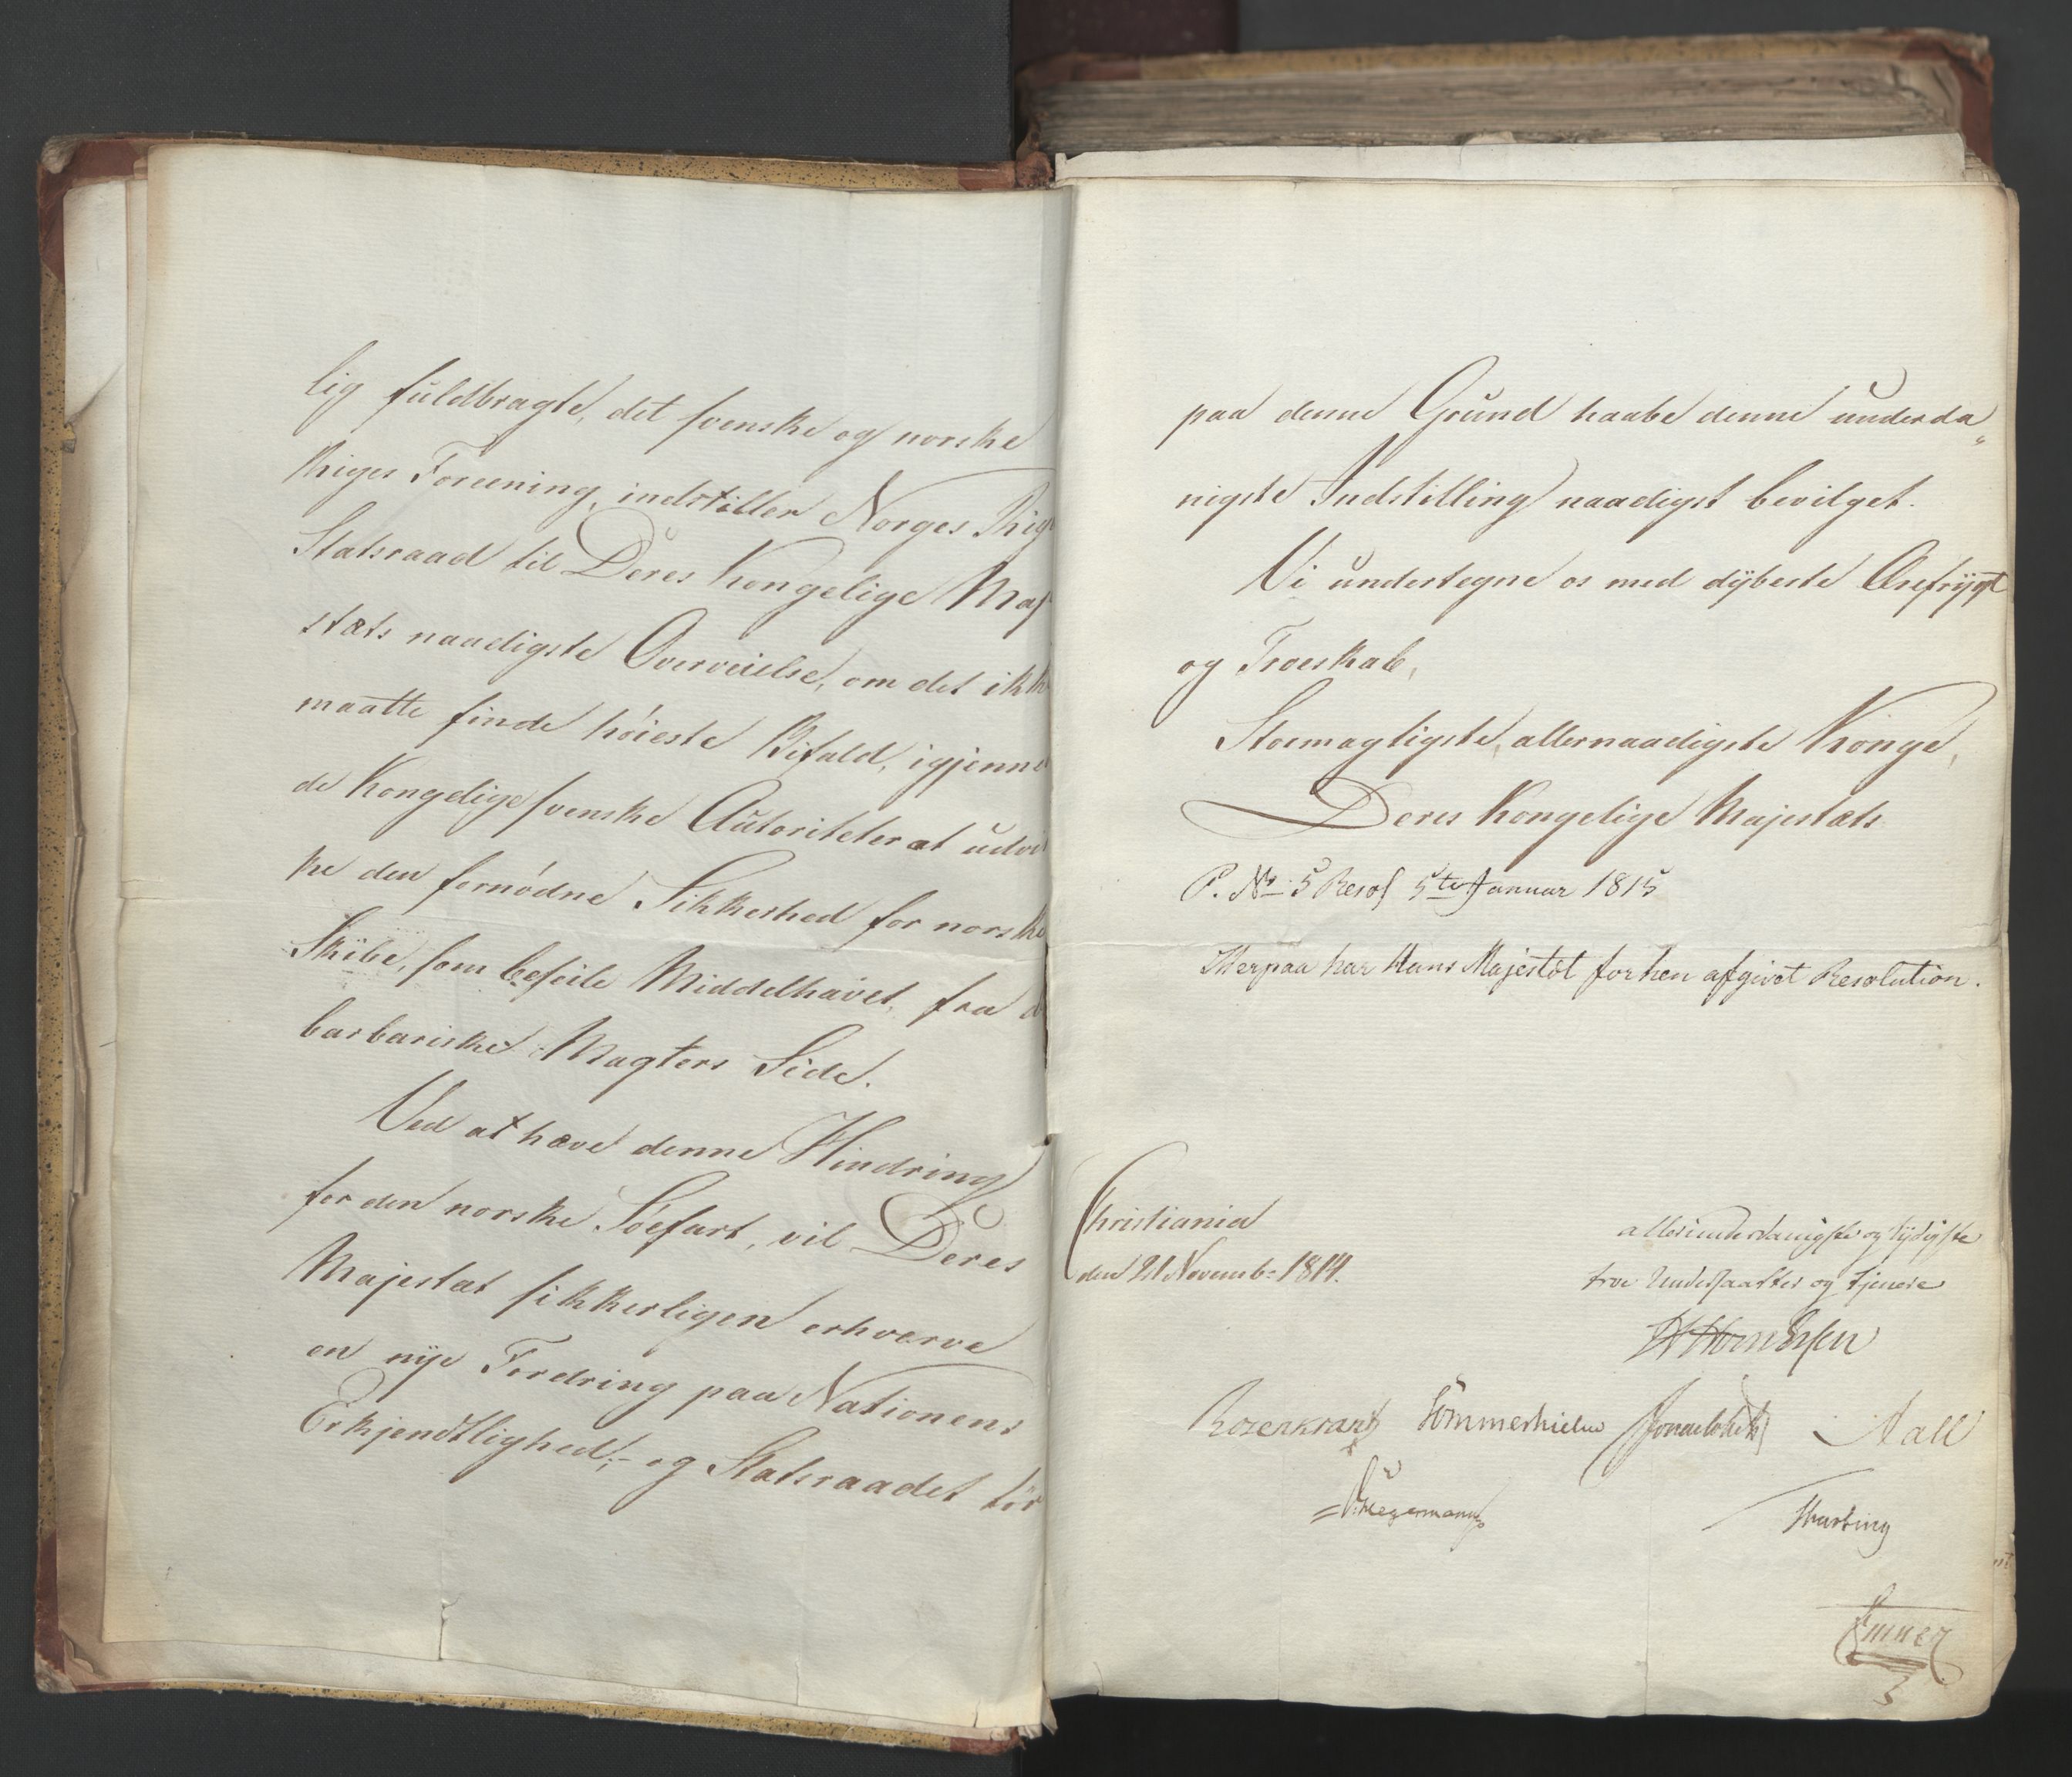 lig fuldbragte, det svenske og norske
Riges Foreening, indstiller Norges Rig
Statsraad til Deres Kongelige Maj
stæts naadigste Overveielse, om det ikk
maatte finde høieste Bifald, igjenne
de Kongelige svenske Autoriteter at udvir
ke den fornødne Sikkerhed for norske
Skibe, som beseile Middelhavet, fra d
barbariske Magters Side.
Ved at hæve denne Hindring
for den norske Søefart, vil Deres
Majestæt sikkerligen erhverve
en nye Fordring paa Nationens
Erkjendtlighed; og Statsraadet tør
paa denne Grund haabe denne underda„
nigste Indstilling naadigst bevilget.
Vi undertegne os med dybeste Ærefrygt
og Troeskab,
Stormægtigste, allernaadigste Konge,
Deres Kongelige Majestæts
P. No 5 Resol 5te Januar 1815
Herpaa har Hans Majestæt forhen afgivet Resolution.
Christiania
den 21 Novemb= 1814.
allerunderdanigste og lydigste
troe Undersaatter og tjenere
Rosenkrantz Sommerhielm Aall
Hegermann